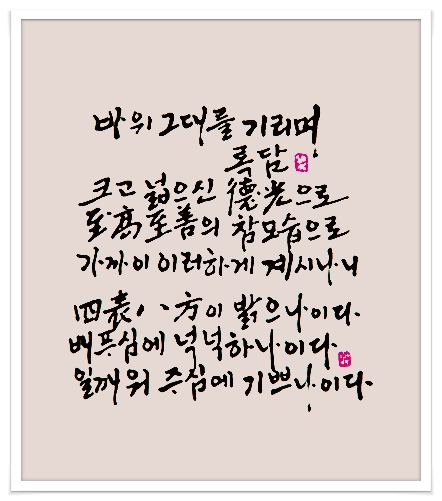 바위 그대를 기리며,
록담
크고 넓으신 德光으로
至高至善의 참모습으로
가까이 이러하게 계시나니
四表八方이 밝으나이다.
베푸심에 넉넉하나이다.
일깨워 주심에 기쁘나이다.